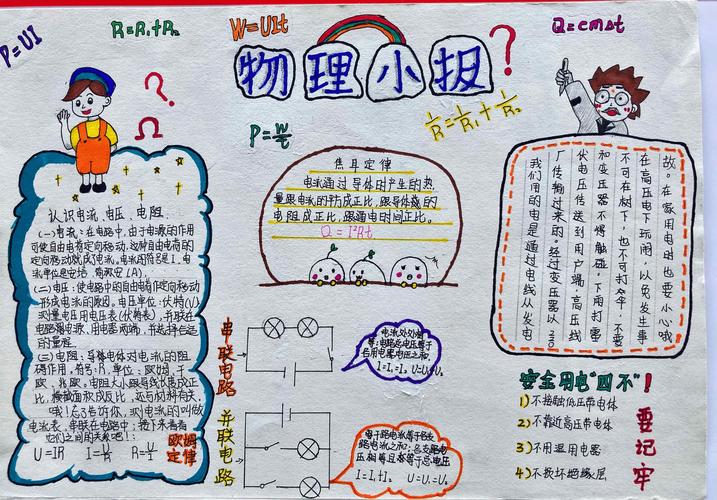 P=UI
R=R₁+R₂
W=UIt
Q=cmΔt
物理小报
?
?
Ω
P=W/t
1/R=1/R₁+1/R₂
认识电流、电压、电阻.
(一)电流:在电路中,由于电源的作用
可使自由电荷定向移动,这种自由电荷的
定向移动就成了电流,电流的符号是I.电
流单位是安培、简称安(A).
(二)电压:使电路中的自由电荷定向移动
形成电流的原因,电压单位:伏特(V)
测量电压用电压表(伏特表),并联在
电路
用电器两端,并选择合适
的量程.
(三)电阻:导体对电流的阻
碍作用,符号:R,单位:欧姆,千
欧,兆欧,电阻大小跟导线长度成正
比,横截面积成反比,还与材料有关,
哦!忘了告诉你,测电流的叫做
电流表,串联在电路中;接下来看看
它们之间的关系吧!:
U=IR I=U/R R=U/I
欧姆
定律
焦耳定律
电流通过导体时产生的热
量跟电流的平方成正比,跟导体的
电阻成正比,跟通电时间正比。
Q=I²Rt
串联电路
电流处处相
等;电路总电压等于
各用电器电压之和.
I=I₁=I₂ U=U₁+U₂
并联电路
等于各支
路电流之和;各支路电
压相等且都等于总电压
I=I₁+I₂ U=U₁=U₂
我们用的电是通过电线从发电
厂传输过来的。经过变压器以220
伏电压传送到用户端,高压线
和变压器不得触碰,下雨打雷
不可在树下,也不可打伞,不要
在高压电下玩闹,以免发生事
故。在家用电时也要小心哦
安全用电“四不”!
1)不接触低压带电体
2)不靠近高压带电体
3)不用湿用电器
4)不损坏绝缘层
要记牢